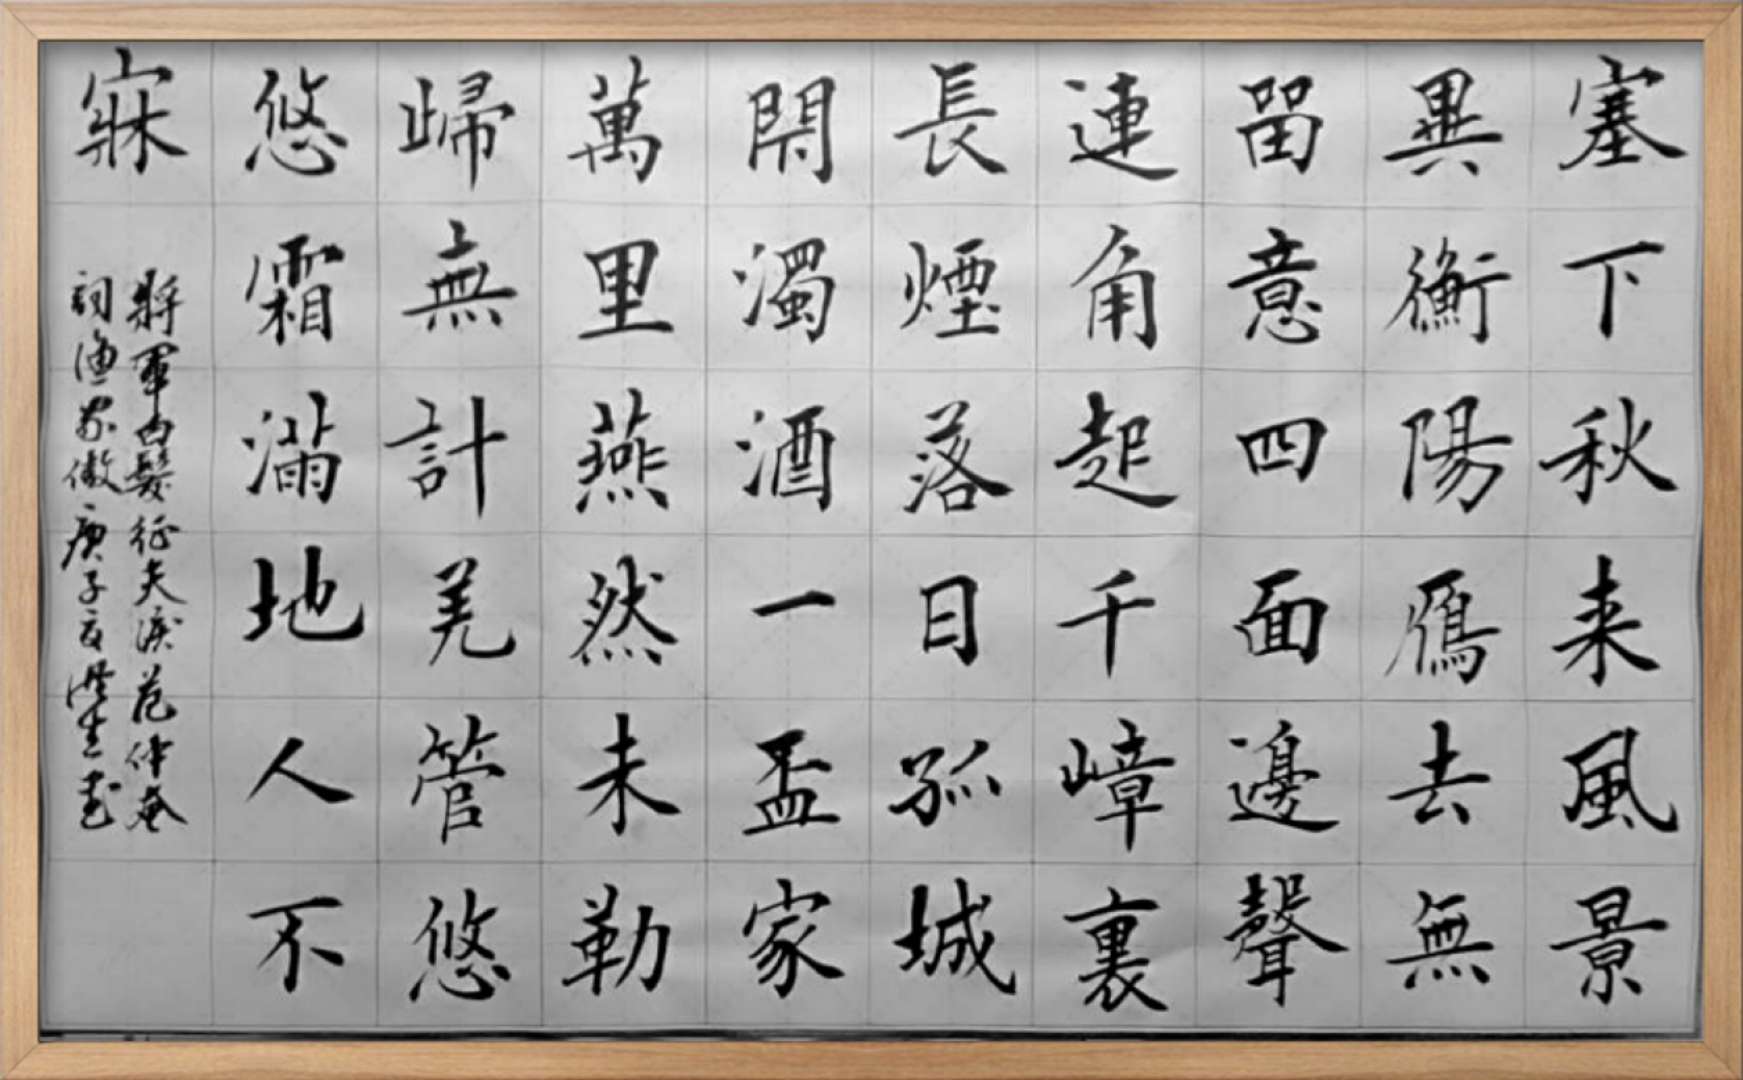 塞下秋来風景
異衡陽鴈去無
留意四面邊聲
連角起千嶂裏
長煙落日孤城
閉濁酒一盃家
萬里燕然未勒
歸無計羌管悠
悠霜滿地人不
寐
將軍白髮征夫淚范仲淹
詞漁家傲庚子夏生書